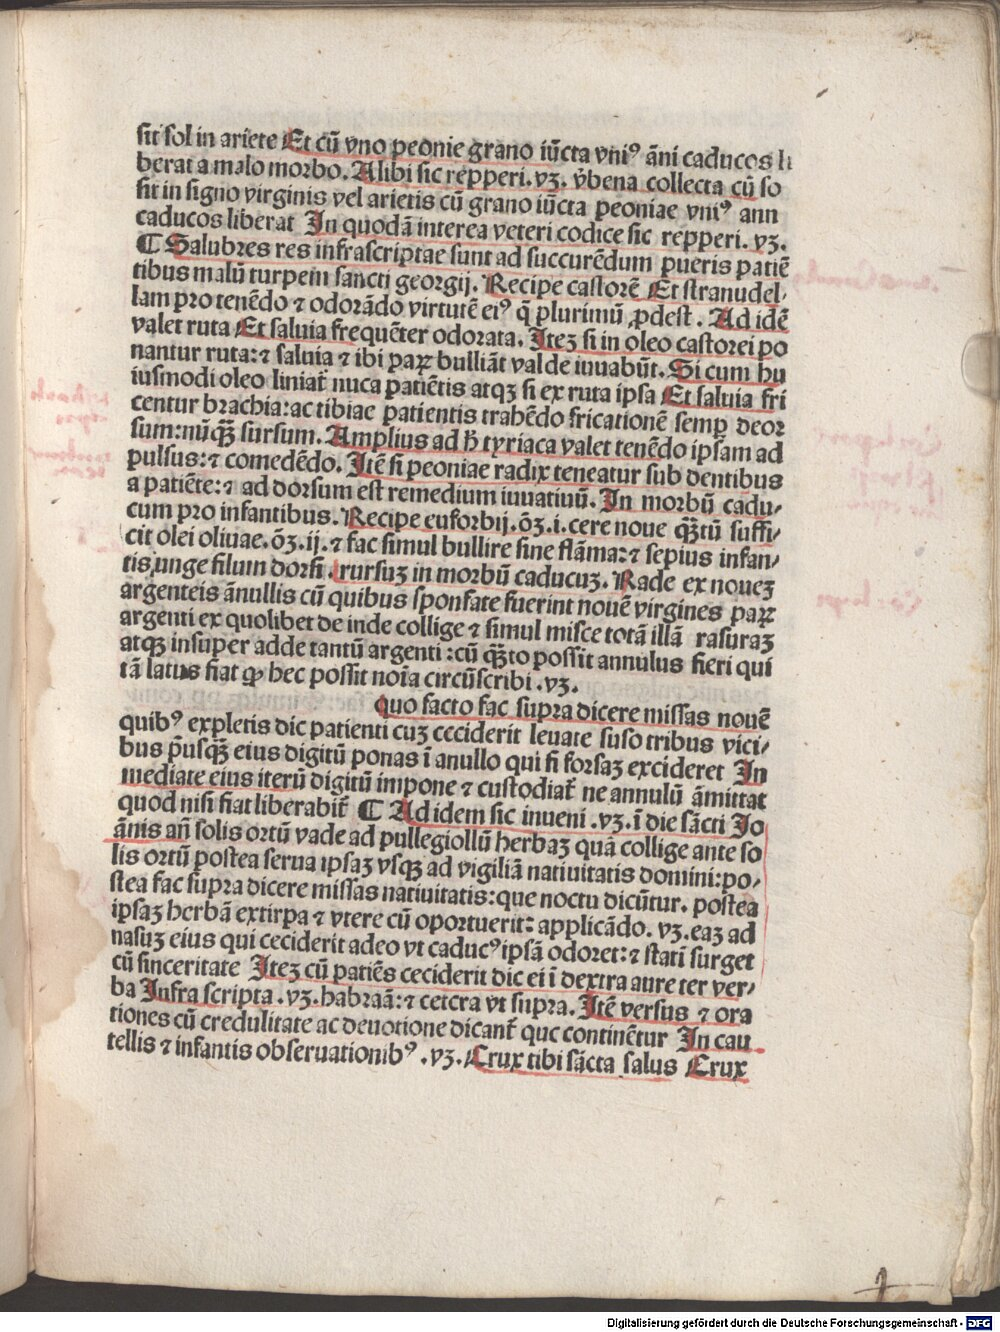 sit sol in ariete Et cū vno peonie grano iūcta vniꝰ āni caducos li
berat a malo morbo. Alibi sic repperi. vꝫ. v̄bena collecta cū so
sit in signo virginis vel arietis cū grano iūcta peoniae vniꝰ ann
caducos liberat In quodā interea veteri codice sic repperi. vꝫ.
¶ Salubres res infrascriptae sunt ad succurēdum pueris patiē
tibus malū turpem sancti georgij. Recipe castorē Et stranudel⸗
lam pro tenēdo ⁊ odorādo virtutē eiꝰ q̄ plurimū ꝓdest. Ad idē
valet ruta Et saluia frequēter odorata. Iteꝫ si in oleo castorei po
nantur ruta: ⁊ saluia ⁊ ibi paꝝ bulliāt valde iuuabūt. Si cum hu
iusmodi oleo liniat̄ nuca patiētis atqꝫ si ex ruta ipsa Et saluia fri
centur brachia: ac tibiae patientis trahēdo fricationē semꝑ deor
sum: nūqꝫ̄ sursum. Amplius ad h̄ tyriaca valet tenēdo ipsam ad
pulsus: ⁊ comedēdo. Itē si peoniae radix teneatur sub dentibus
a patiēte: ⁊ ad dorsum est remedium iuuatiuū. In morbū cadu⸗
cum pro infantibus. Recipe euforbij. ōꝫ. i. cere noue qꝫ̄tū suffi⸗
cit olei oliuae. ōꝫ. ij. ⁊ fac simul bullire sine flāma: ⁊ sepius infan⸗
tis unge filum dorsi. rursuꝫ in morbū caducuꝫ. Rade ex noueꝫ
argenteis ānullis cū quibus sponsate fuerint nouē virgines paꝝ
argenti ex quolibet de inde collige ⁊ simul misce totā illā rasuraꝫ
atqꝫ insuper adde tantū argenti: cū qꝫ̄to possit annulus fieri qui
tā latus fiat ꝙ hec possit noīa circūscribi. vꝫ.
quo facto fac supra dicere missas nouē
quibꝰ expletis dic patienti cuꝫ ceciderit leuate suso tribus vici⸗
bus p̄usqꝫ̄ eius digitū ponas ī anullo qui si forsaꝫ excideret In
mediate eius iterū digitū impone ⁊ custodiat̄ ne annulū āmittat
quod nisi fiat liberabit̄ ¶ Ad idem sic inueni. vꝫ. ī die sācti Jo
ānis an̄ solis ortū vade ad pullegiollū herbaꝫ quā collige ante so
lis ortū postea serua ipsaꝫ vsqꝫ ad vigiliā natiuitatis domini: po⸗
stea fac supra dicere missas natiuitatis: que noctu dicūtur. postea
ipsaꝫ herbā extirpa ⁊ vtere cū oportuerit: applicādo. vꝫ. eaꝫ ad
nasuꝫ eius qui ceciderit adeo vt caducꝰ ipsā odoret: ⁊ stati surget
cū sinceritate Iteꝫ cū patiēs ceciderit dic ei ī dextra aure ter ver⸗
ba Infra scripta. vꝫ. habraā: ⁊ cetera vt supra. Itē versus ⁊ ora
tiones cū credulitate ac deuotione dicant̄ que continētur In cau
tellis ⁊ infantis obseruationibꝰ. vꝫ. Crux tibi sācta salus Crux
Digitalisierung gefördert durch die Deutsche Forschungsgemeinschaft - DFG